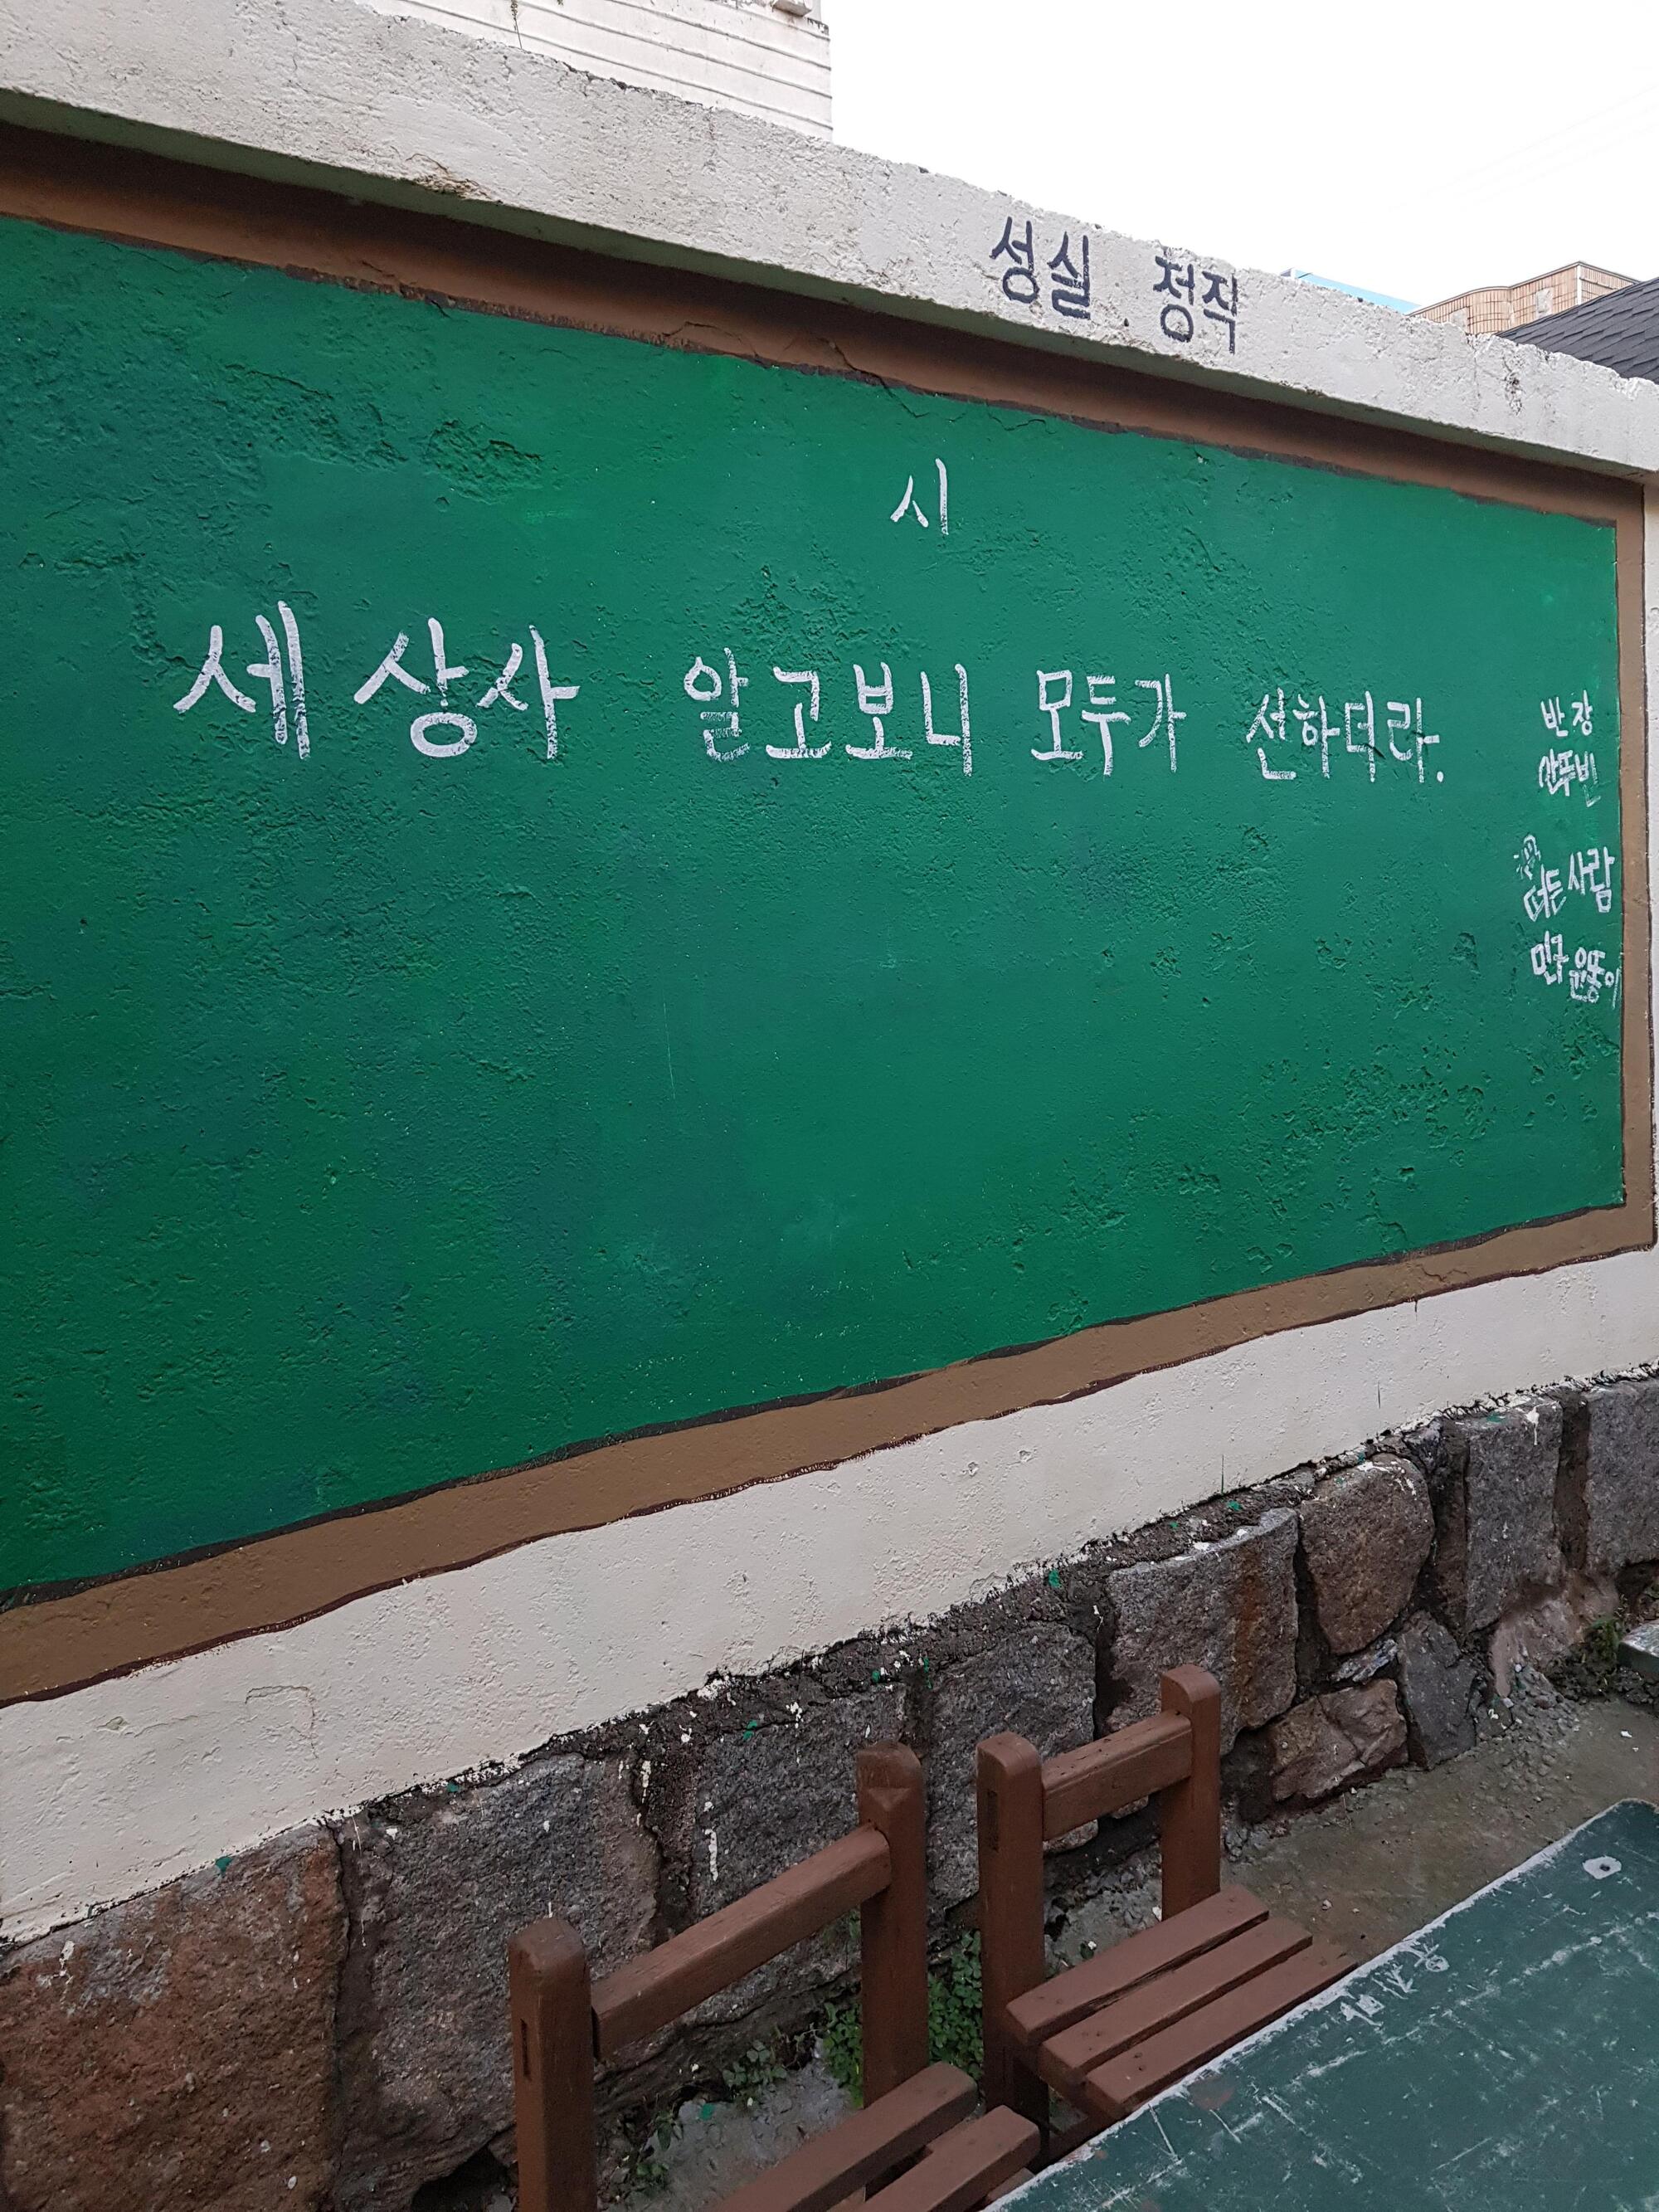 성실 정직
시
세상사 알고보니 모두가 선하더라.
반장
안뚜빈
떠든 사람
민구 윤똥이